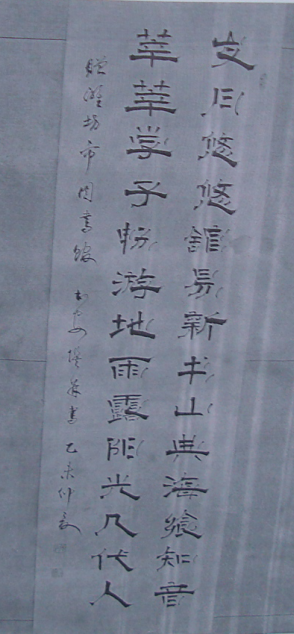 岁月悠悠馆易新书山典海飨知音
莘莘学子畅游地雨露阳光几代人
赠潍坊市图书馆 书 乙未仲夏